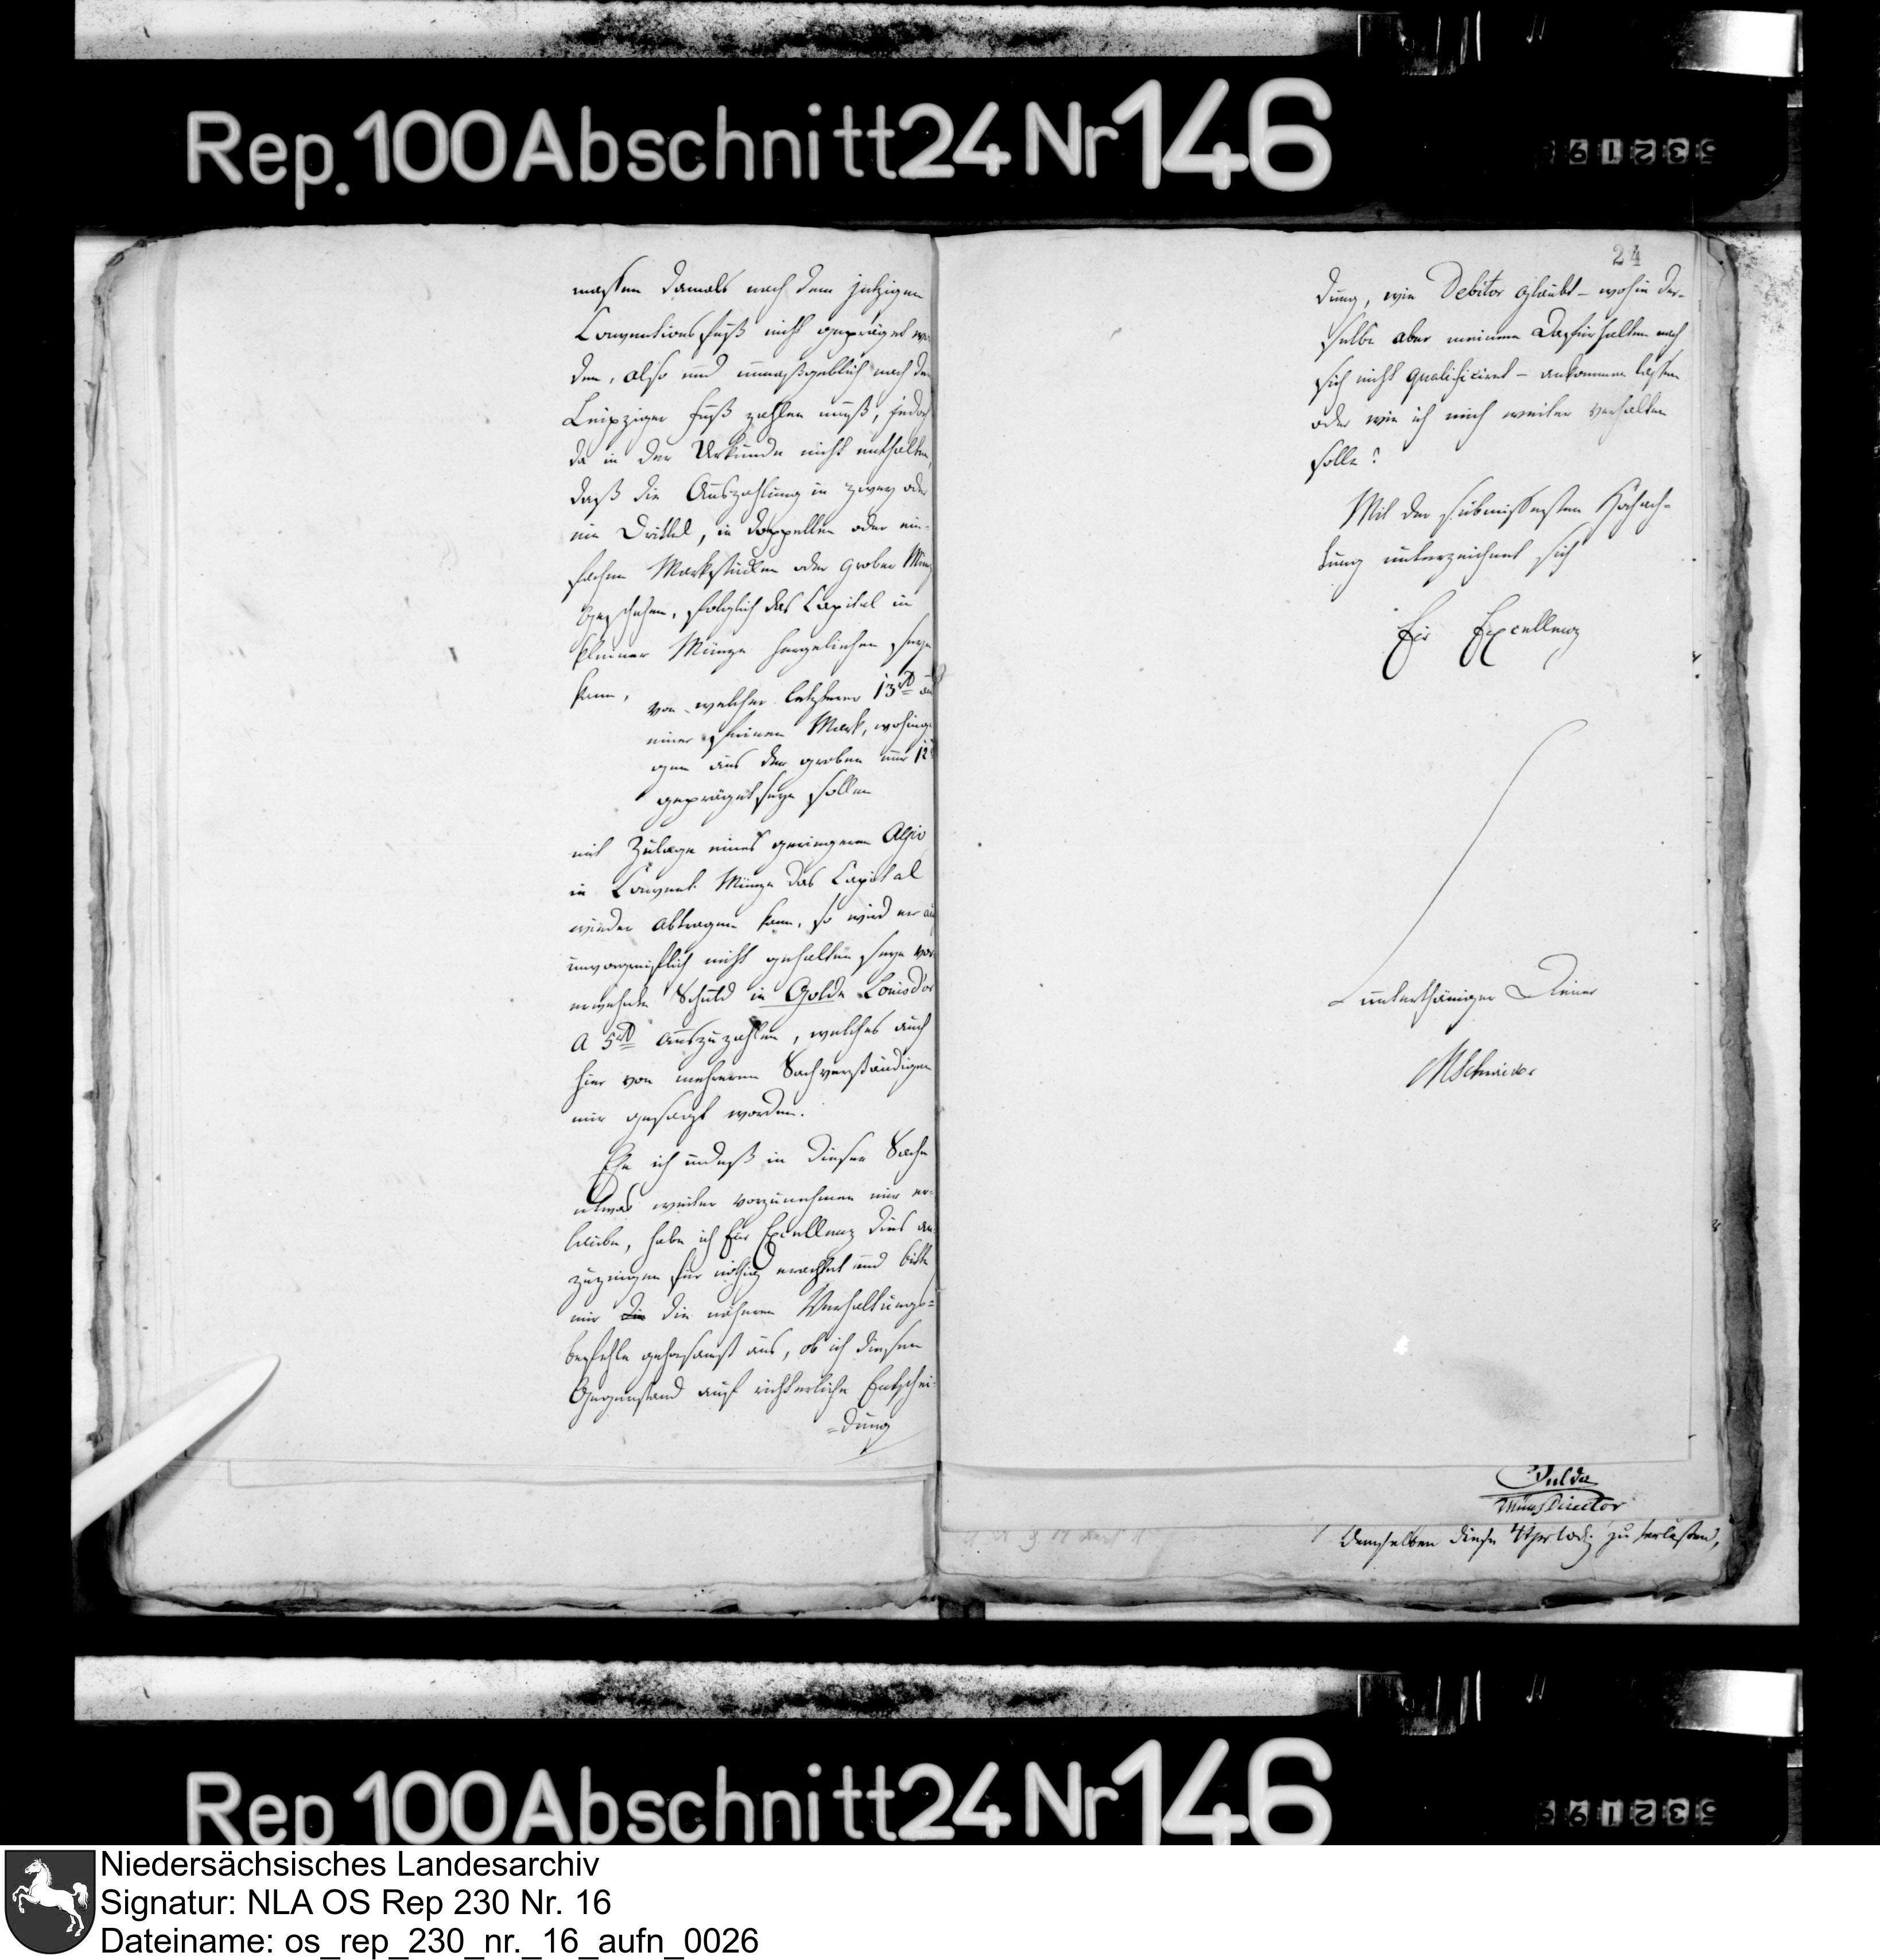 Rep. 100 Abschnitt 24 Nr 146
maßen damals nach dem jetzigen
Conventionsfuß nicht gepräget wor
den, also und unmaßgeblich nach dem
Leipziger Fuß zahlen muß, jedoch
da in der Urkunde nicht enthalten,
daß die Auszahlung in zwey oder
ein Drittel, in doppellten oder ein-
fachen Markstücken oder grober Münz
geschehen, folglich das Capital in
kleiner Münze hergeliehen seyn
kann,
von welcher letzterer 13 rt aus
einer feinen Mark, wohinge
gen aus der groben nur 12
gepräget seyn sollen
mit Zulage eines geringeren Agio
in Convent. Münze das Capital
wieder abtragen kann, so wird er auch
unvorgreiflich nicht gehalten seyn vor
erwehnte Schuld in Golde Louisd'or
a 5 rt auszuzahlen, welches auch
hier von mehreren Sachverständigen
mir gesagt worden.
Ehe ich indeß in dieser Sache
etwas weiter vorzunehmen mir er-
laube, habe ich Eur Excellenz dies an
zuzeigen für nöthig erachtet und bitte
mir die die nähern Verhaltungs=
befehle gehorsamst aus, ob ich diesen
Gegenstand auf richterliche Entschei-
=dung
24
dung, wie Debitor glaubt – wohin der-
selbe aber meinem Dafürhalten nach
sich nicht qualificiret – ankommen lassen
oder wie ich mich weiter verhalten
solle?
Mit der submissesten Hochach-
tung unterzeichnet sich
Eur Excellenz
unterthäniger Diener
MSchneider
Münz Director
demselben diese zu
Rep 100 Abschnitt 24 Nr 146
Niedersächsisches Landesarchiv
Signatur: NLA OS Rep 230 Nr. 16
Dateiname: os_rep_230_nr._16_aufn_0026